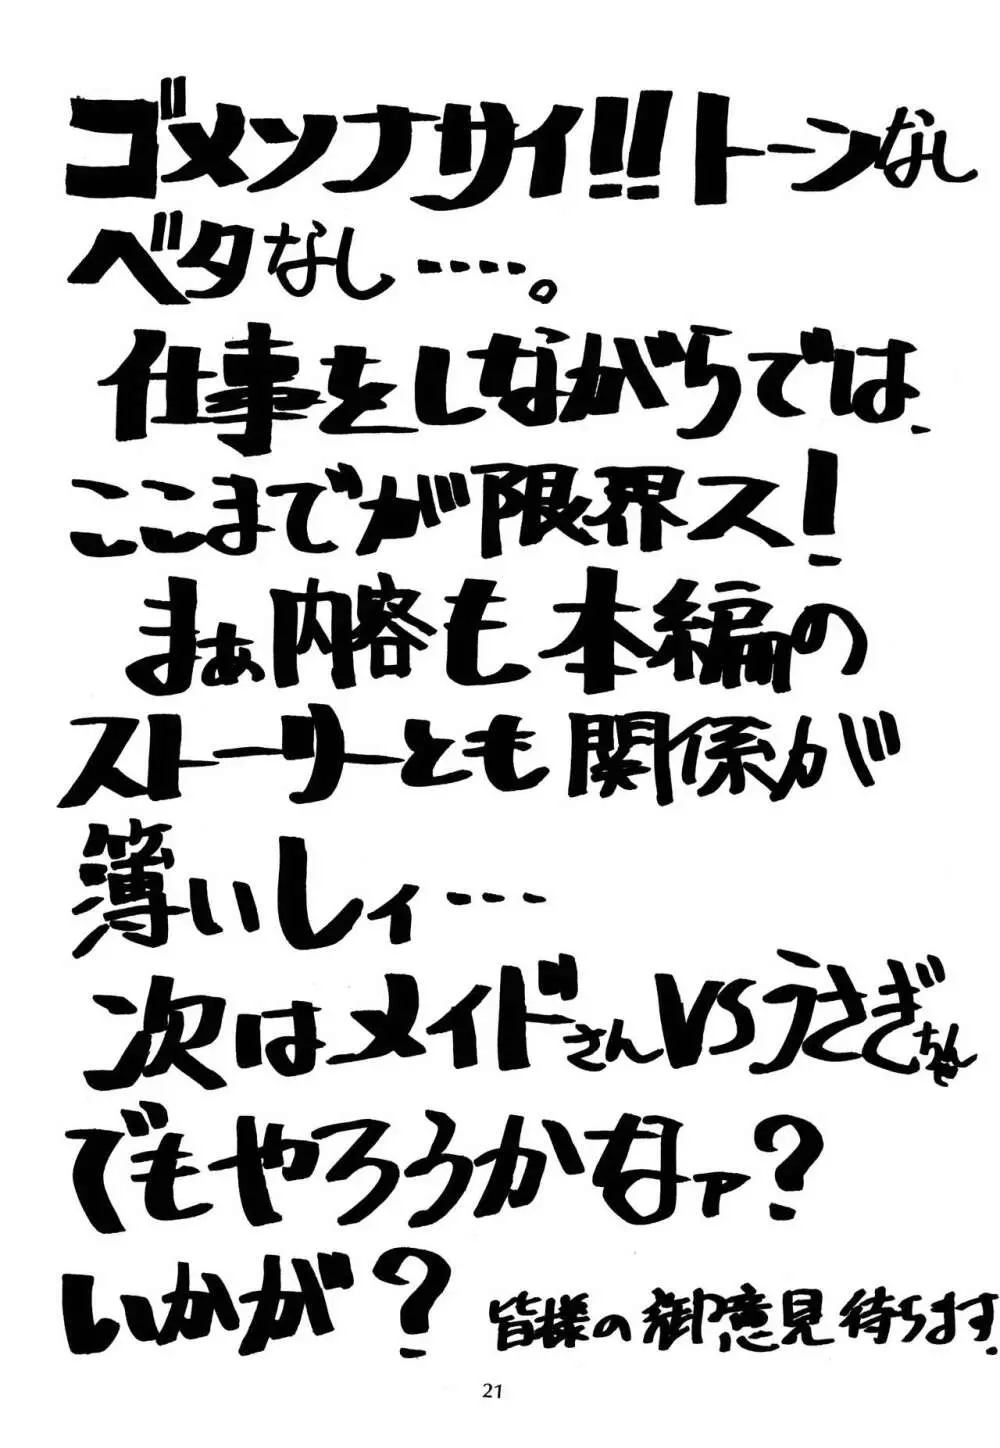 ゴメンナサイ!!トーンなし
ベタなし‥‥。
仕事をしながらでは、
ここまでが限界ス!
まぁ内容も本編の
ストーリーとも関係が
薄いしィ‥‥
次はメイドさんVSうさぎちゃん
でもやろうかなァ?
いかが?
皆様の御意見待ちます.
21